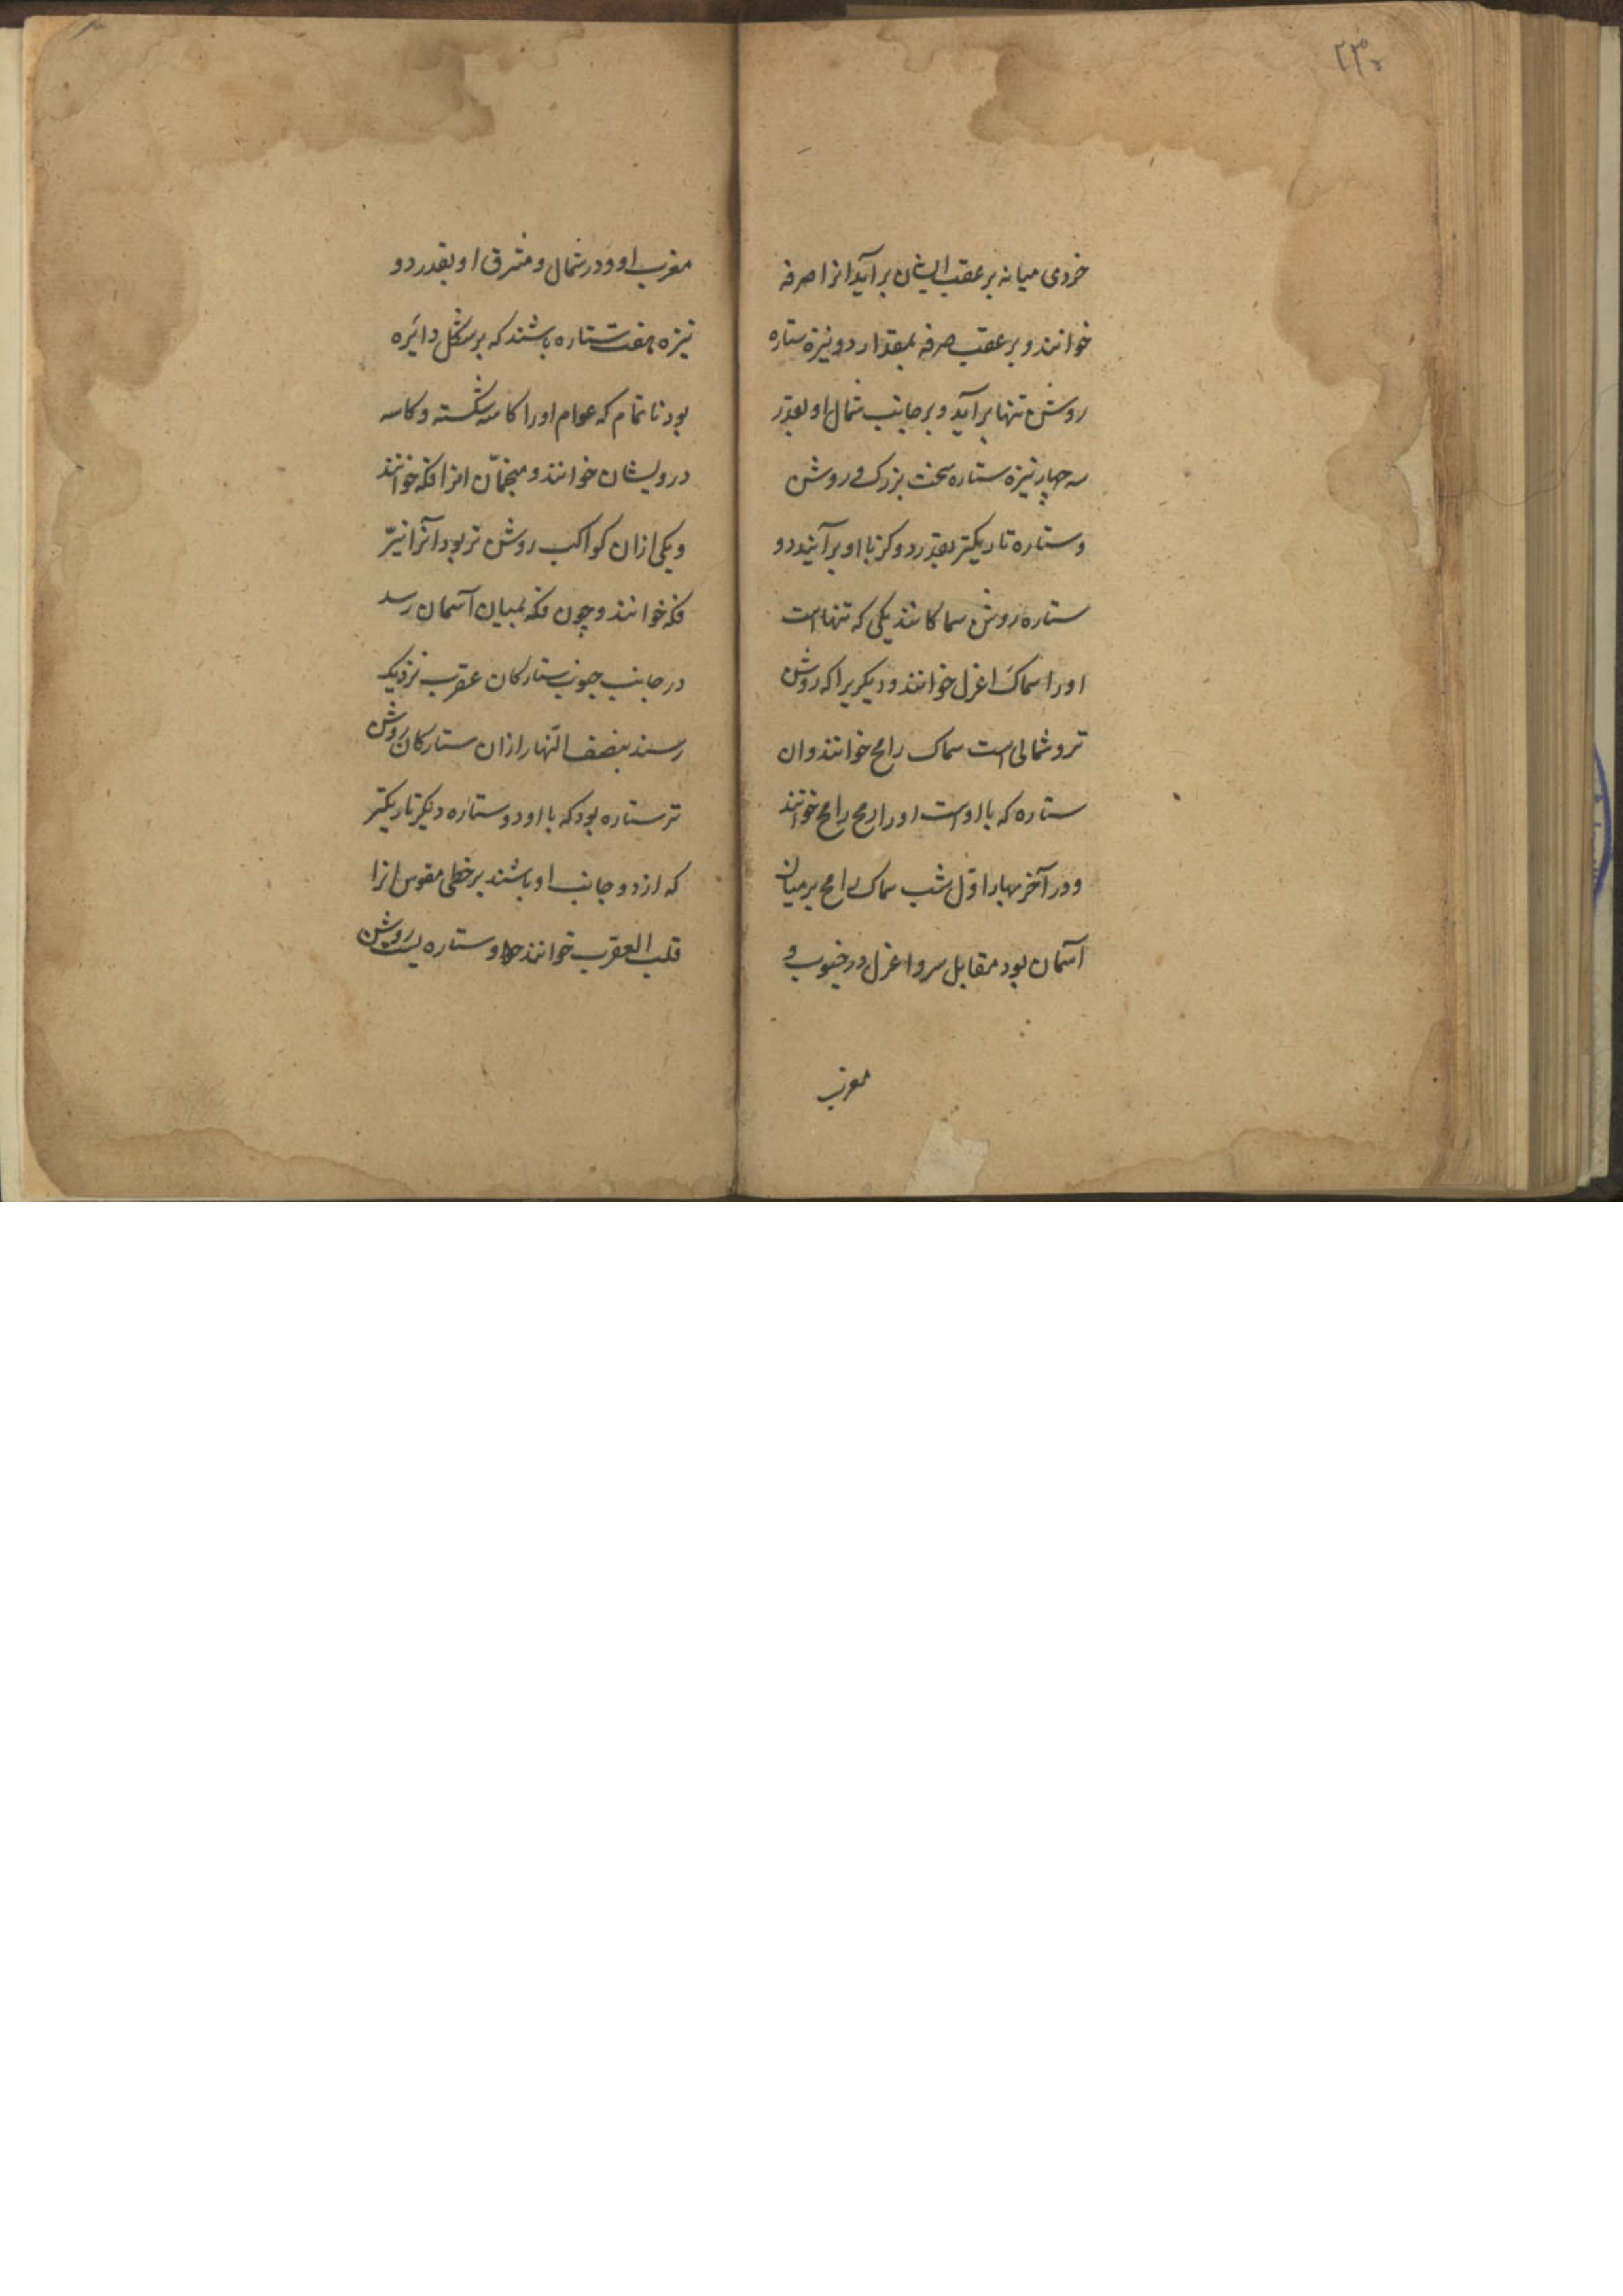 ۲۳۰
خردی میانه بر عقب ایشان برآید انرا صرفه
خوانند و بر عقب صرفه بمقدار دو نیزه ستاره
روشن تنها برآید و بر جانب شمال او بقدر
سه چهار نیزه ستاره سخت بزرک و روشن
و ستاره تاریکتر بقدر دو کز با او برآیند دو
ستاره روشن سماکانند یکی که تنهاست
اورا سماک اعزل خوانند و دیکریرا که روشن
تر و شمالی است سماک رامح خوانند وان
ستاره که با اوست اورا رمح رامح خوانند
و در آخر بهار اوّل شب سماک رامح بر میان
آسمان بود مقابل سر و اعزل در جنوب و
مغرب
مغرب او و در شمال و مشرق او بقدر دو
نیزه هفت ستاره باشند که بر شکل دائره
بود ناتمام که عوام اورا کاسه شکسته و کاسه
درویشان خوانند و منجمّان انرا فکه خوانند
و یکی ازان کواکب روشن تر بود آنرا نیّر
فکه خوانند و چون فکه بمیان آسمان رسد
در جانب جنوب ستارکان عقرب نزدیک
رسند بنصف النّهار ازان ستارکان روشن
تر ستاره بود که با او دو ستاره دیکر تاریکتر
که از دو جانب او باشند بر خطی مقوس انرا
قلب العقرب خوانند و ستاره یست روشن